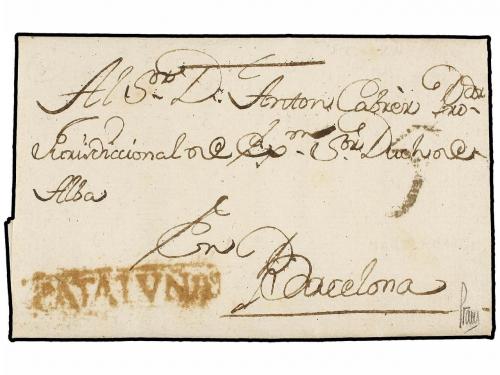 Al Sor. Dn. Anton Cabrèr
Jurisdiccional de Exm. Sor. Duch de
Alba
En
Barcelona
CATALUÑA